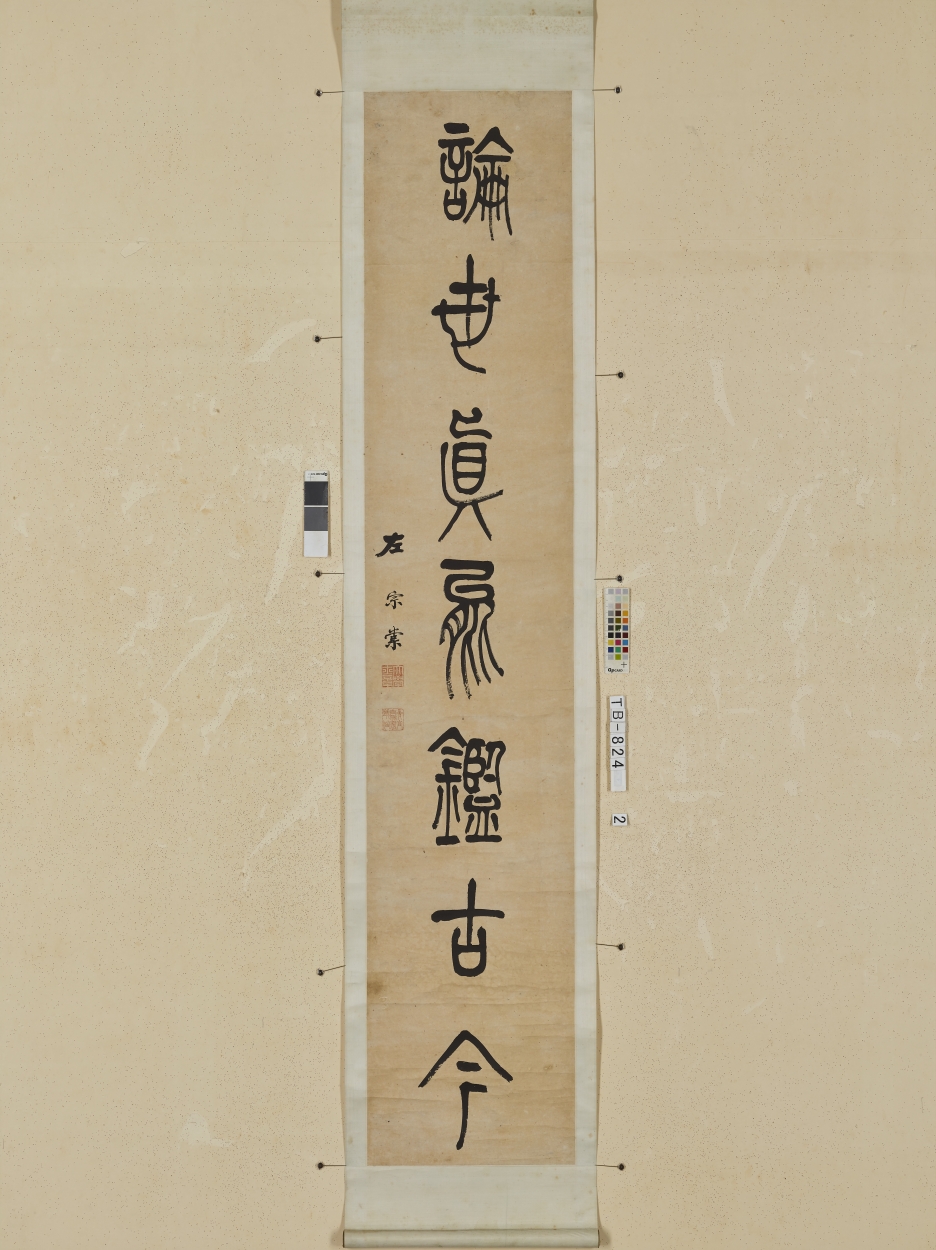 論世眞鑑古今
左宗棠
TB-824
2